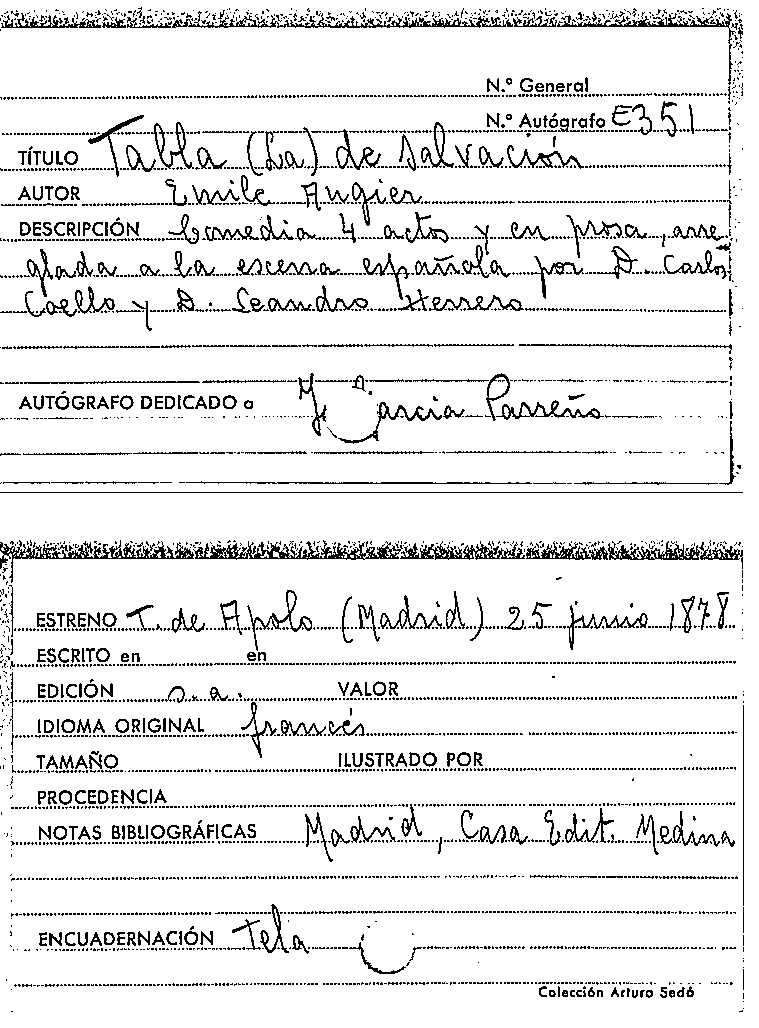 N.º General
N.º Autógrafo E351
TÍTULO Tabla (La) de salvación
AUTOR Emile Angier
DESCRIPCIÓN Comedia 4 actos y en prosa, arre
glada a la escena española por D. Carlos
Coello y D. Leandro Herrero
AUTÓGRAFO DEDICADO a García Parreño
ESTRENO T. de Apolo (Madrid) 25 junio 1878
ESCRITO en en
EDICIÓN s.a. VALOR
IDIOMA ORIGINAL francés
TAMAÑO ILUSTRADO POR
PROCEDENCIA
NOTAS BIBLIOGRÁFICAS Madrid, Casa Edit. Medina
ENCUADERNACIÓN Tela
Colección Arturo Sedó